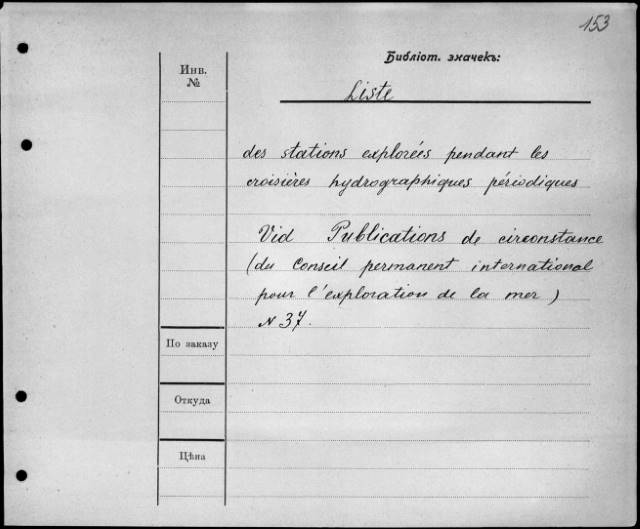 153
Библіот. значекъ:
Инв.
№
Liste
des stations explorées pendant les
croisières hydrographiques périodiques
Vid Publications de circonstance
(du Conseil permanent international
pour l'exploration de la mer)
N 37.
По заказу
Откуда
Цѣна